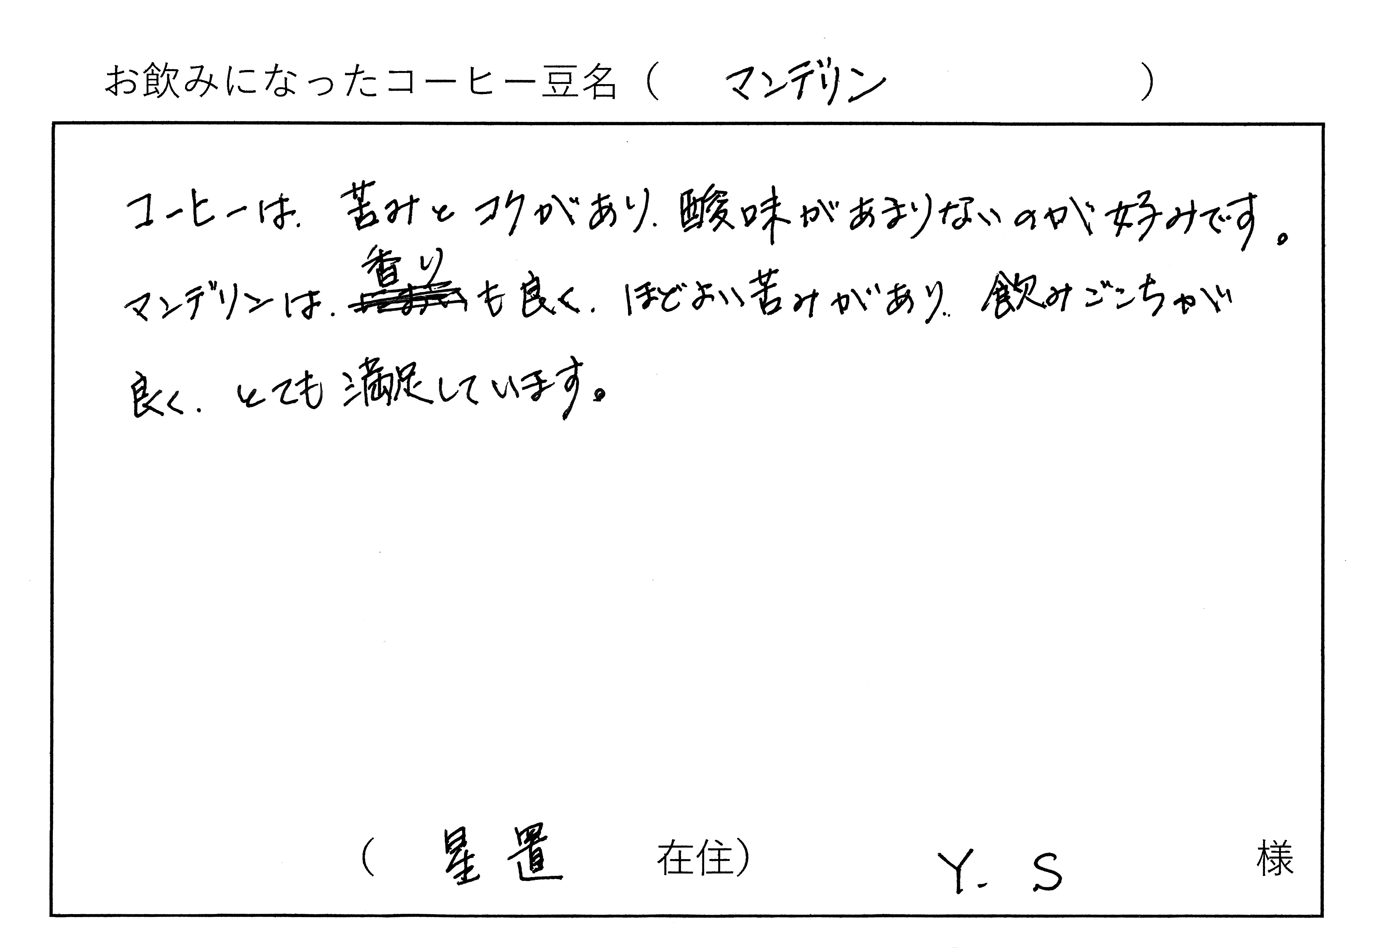 お飲みになったコーヒー豆名( マンデリン )
コーヒーは、苦みとコクがあり、酸味があまりないのが好みです。
マンデリンは、香りも良く、ほどよい苦みがあり、飲みごこちが
良く、とても満足しています。
( 星置 在住) Y. S 様